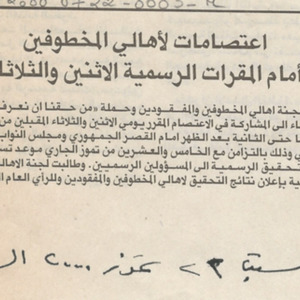 2000 0722-0005-M
اعتصامات لأهالي المخطوفين
أمام المقرات الرسمية الاثنين والثلاثاء
لجنة اهالي المخطوفين والمفقودين وحملة «من حقنا ان نعرف
اء الى المشاركة في الاعتصام المقرر يومي الاثنين والثلاثاء المقبلين من
ا حتى الثانية بعد الظهر امام القصر الجمهوري ومجلس النواب
ي وذلك بالتزامن مع الخامس والعشرين من تموز الجاري موعد تس
لتحقيق الرسمية الى المسؤولين الرسميين. وطالبت لجنة الاهال
ية بإعلان نتائج التحقيق لاهالي المخطوفين والمفقودين وللرأي العام ال
تموز ٢٠٠٠